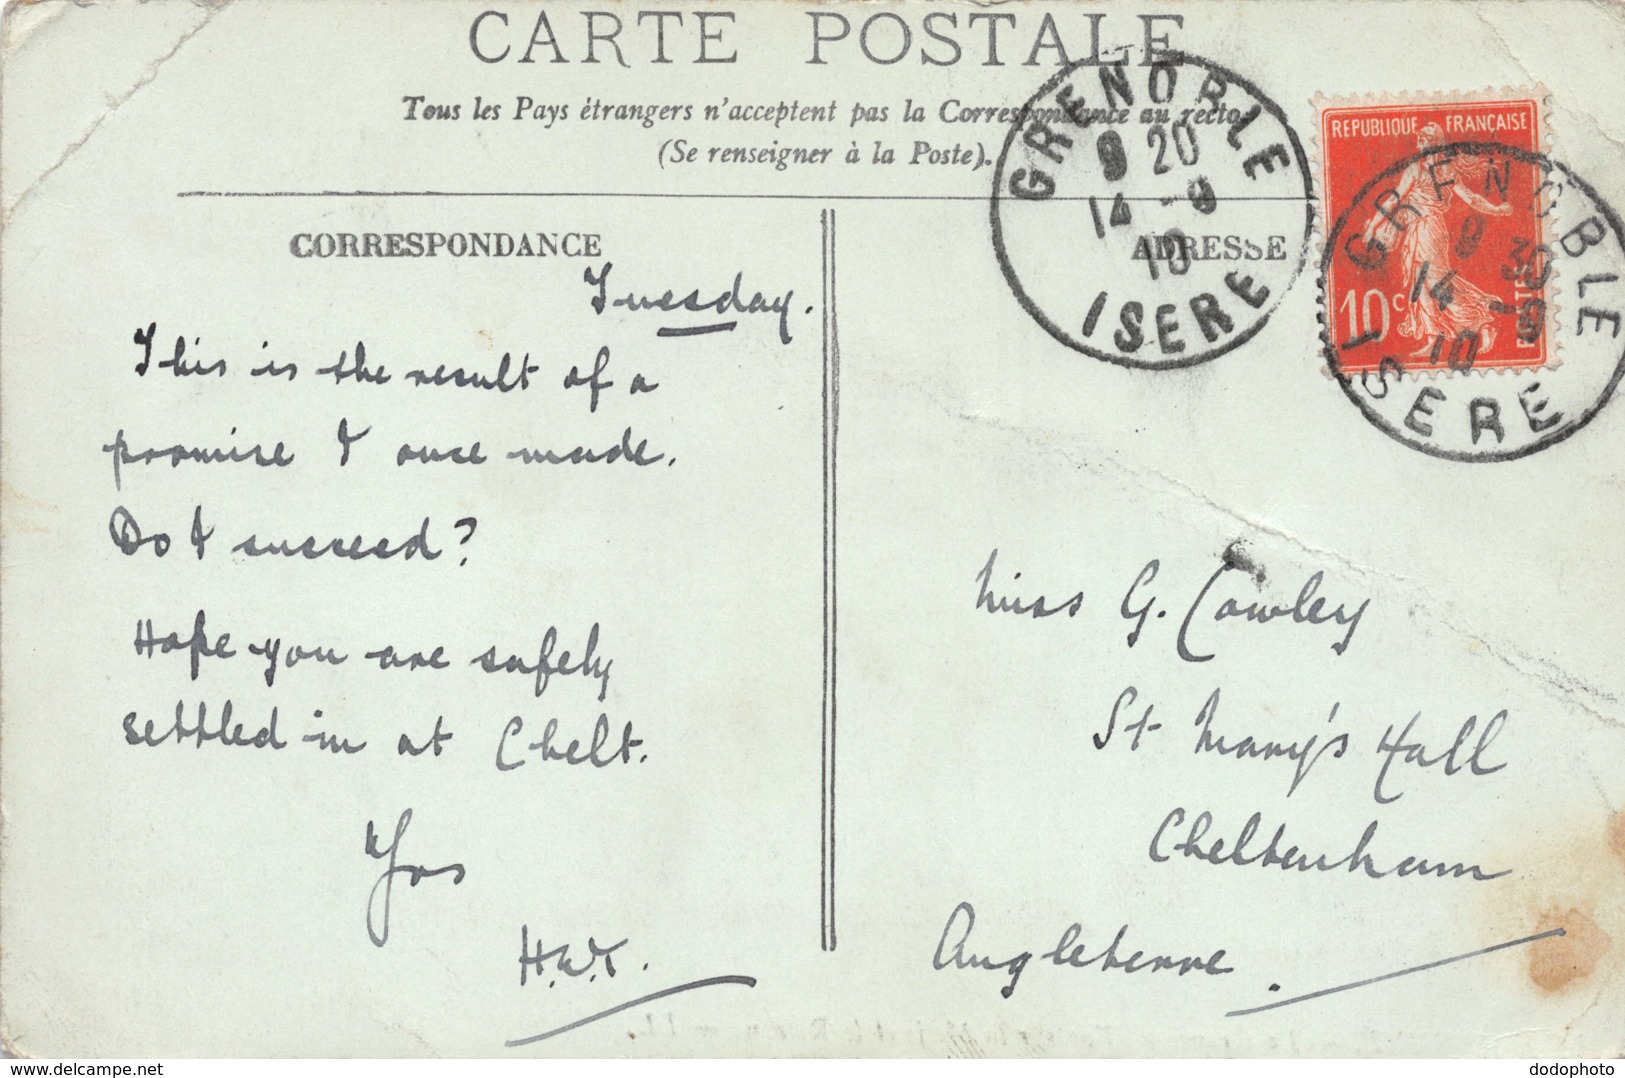 CARTE POSTALE
Tous les Pays étrangers n'acceptent pas la Correspondance au recto.
(Se renseigner à la Poste).
CORRESPONDANCE
Tuesday.
This is the result of a
promise I once made.
Do I succeed?
Hope you are safely
settled in at Chelt.
Yrs
H.W.T.
ADRESSE
GRENOBLE
9 20
14 - 9
10
ISERE
REPUBLIQUE FRANÇAISE
10c
POSTES
GRENOBLE
9 30
14 - 9
10
ISERE
Miss G. Cowley
St Mary's Hall
Cheltenham
Angleterre.
delcampe.net
dodophoto